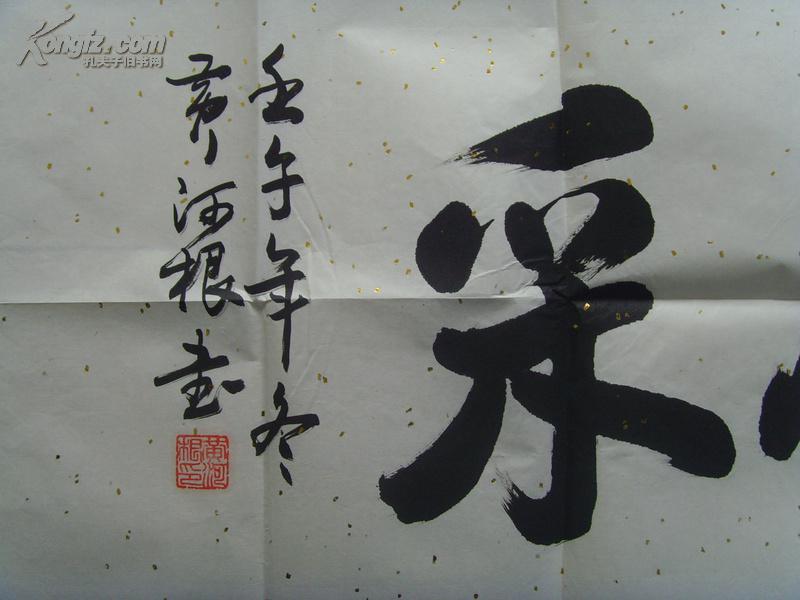 采
壬午年冬
黄河根书
黄河
根印
Kongfz.com
孔夫子旧书网